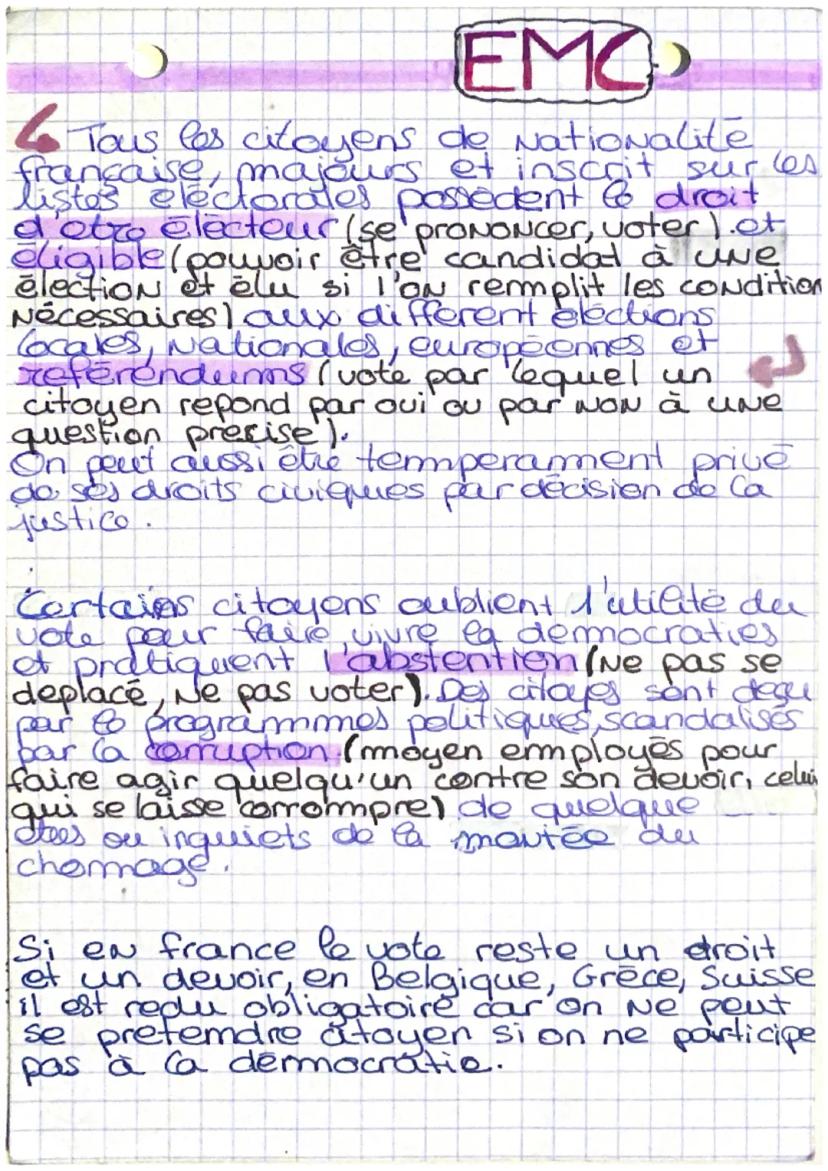 EMC
Tous les citoyens de nationalité
française, majours et inscrit sur les
listes éléctorales possèdent le droit
d'etre électeur (se prononcer, voter). et
éligible (pouvoir être candidat à une
élection et élu si l'on remplit les condition
nécessaires) aux différent éléctions
locales, nationales, européennes et
reférendums (vote par lequel un
citoyen repond par oui ou par non à une
question precise).
On peut aussi être temperamment privé
de ses droits civiques par décision de la
justice.
Certains citoyens oublient l'utilité du
vote pour faire vivre la democraties
et pratiquent l'abstention (ne pas se
deplacé, ne pas voter). Des citoyes sont deçu
par le programmes politiques, scandalisés
par la corruption (moyen employés pour
faire agir quelqu'un contre son devoir, celui
qui se laisse corrompre) de quelque
élues ou inquiets de la montée du
chommage.
Si en france le vote reste un droit
et un devoir, en Belgique, Grèce, Suisse
il est redu obligatoire car on ne peut
se pretemdre citoyen si on ne participe
pas à la démocratie.